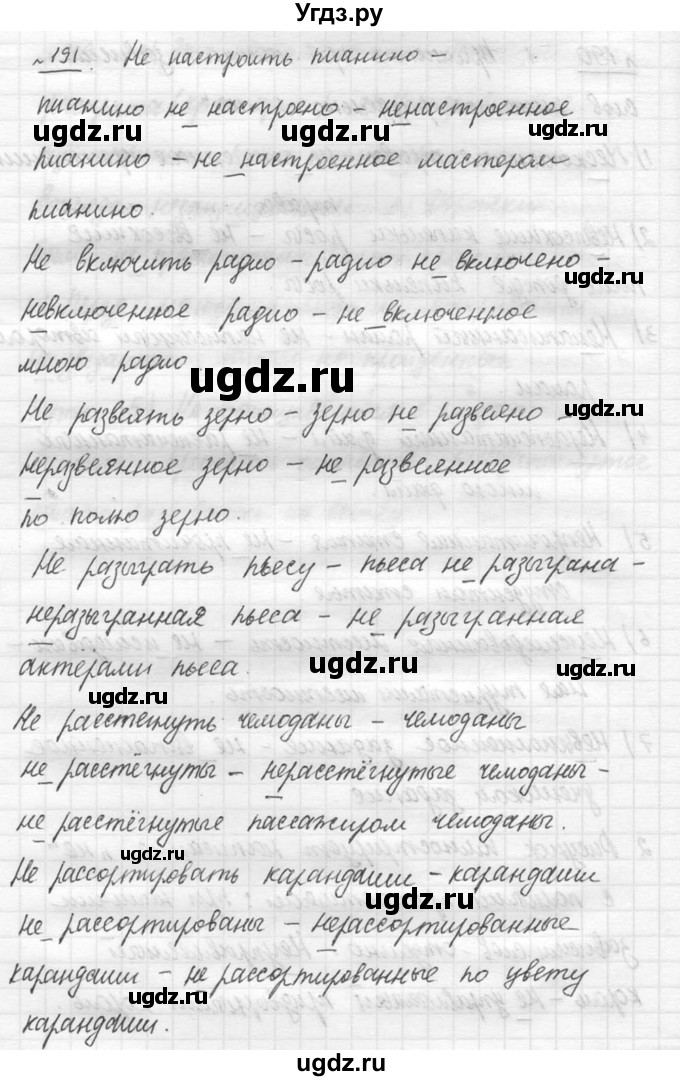 Угдз.ру
№191. Не настроить пианино –
пианино не настроено – ненастроенное
ugdz.ru ugdz.ru
пианино – не настроенное мастером
пианино.
Не включить радио – радио не включено –
ugdz.ru
невключенное радио – не включенное
мною радио
ugdz.ru
Не развеять зерно – зерно не развеяно –
ugdz.ru
неразвеянное зерно – не развеянное
по полю зерно.
Не разыграть пьесу – пьеса не разыграна –
неразыгранная пьеса – не разыгранная
актёрами пьеса.
ugdz.ru ugdz.ru
ugdz.ru
Не расстегнуть чемоданы – чемоданы
не расстегнуты – нерасстёгнутые чемоданы –
не расстёгнутые пассажиром чемоданы.
ugdz.ru
Не рассортировать карандаши – карандаши
не рассортированы – нерассортированные
ugdz.ru
карандаши – не рассортированные по цвету
ugdz.ru
карандаши.
ugdz.ru